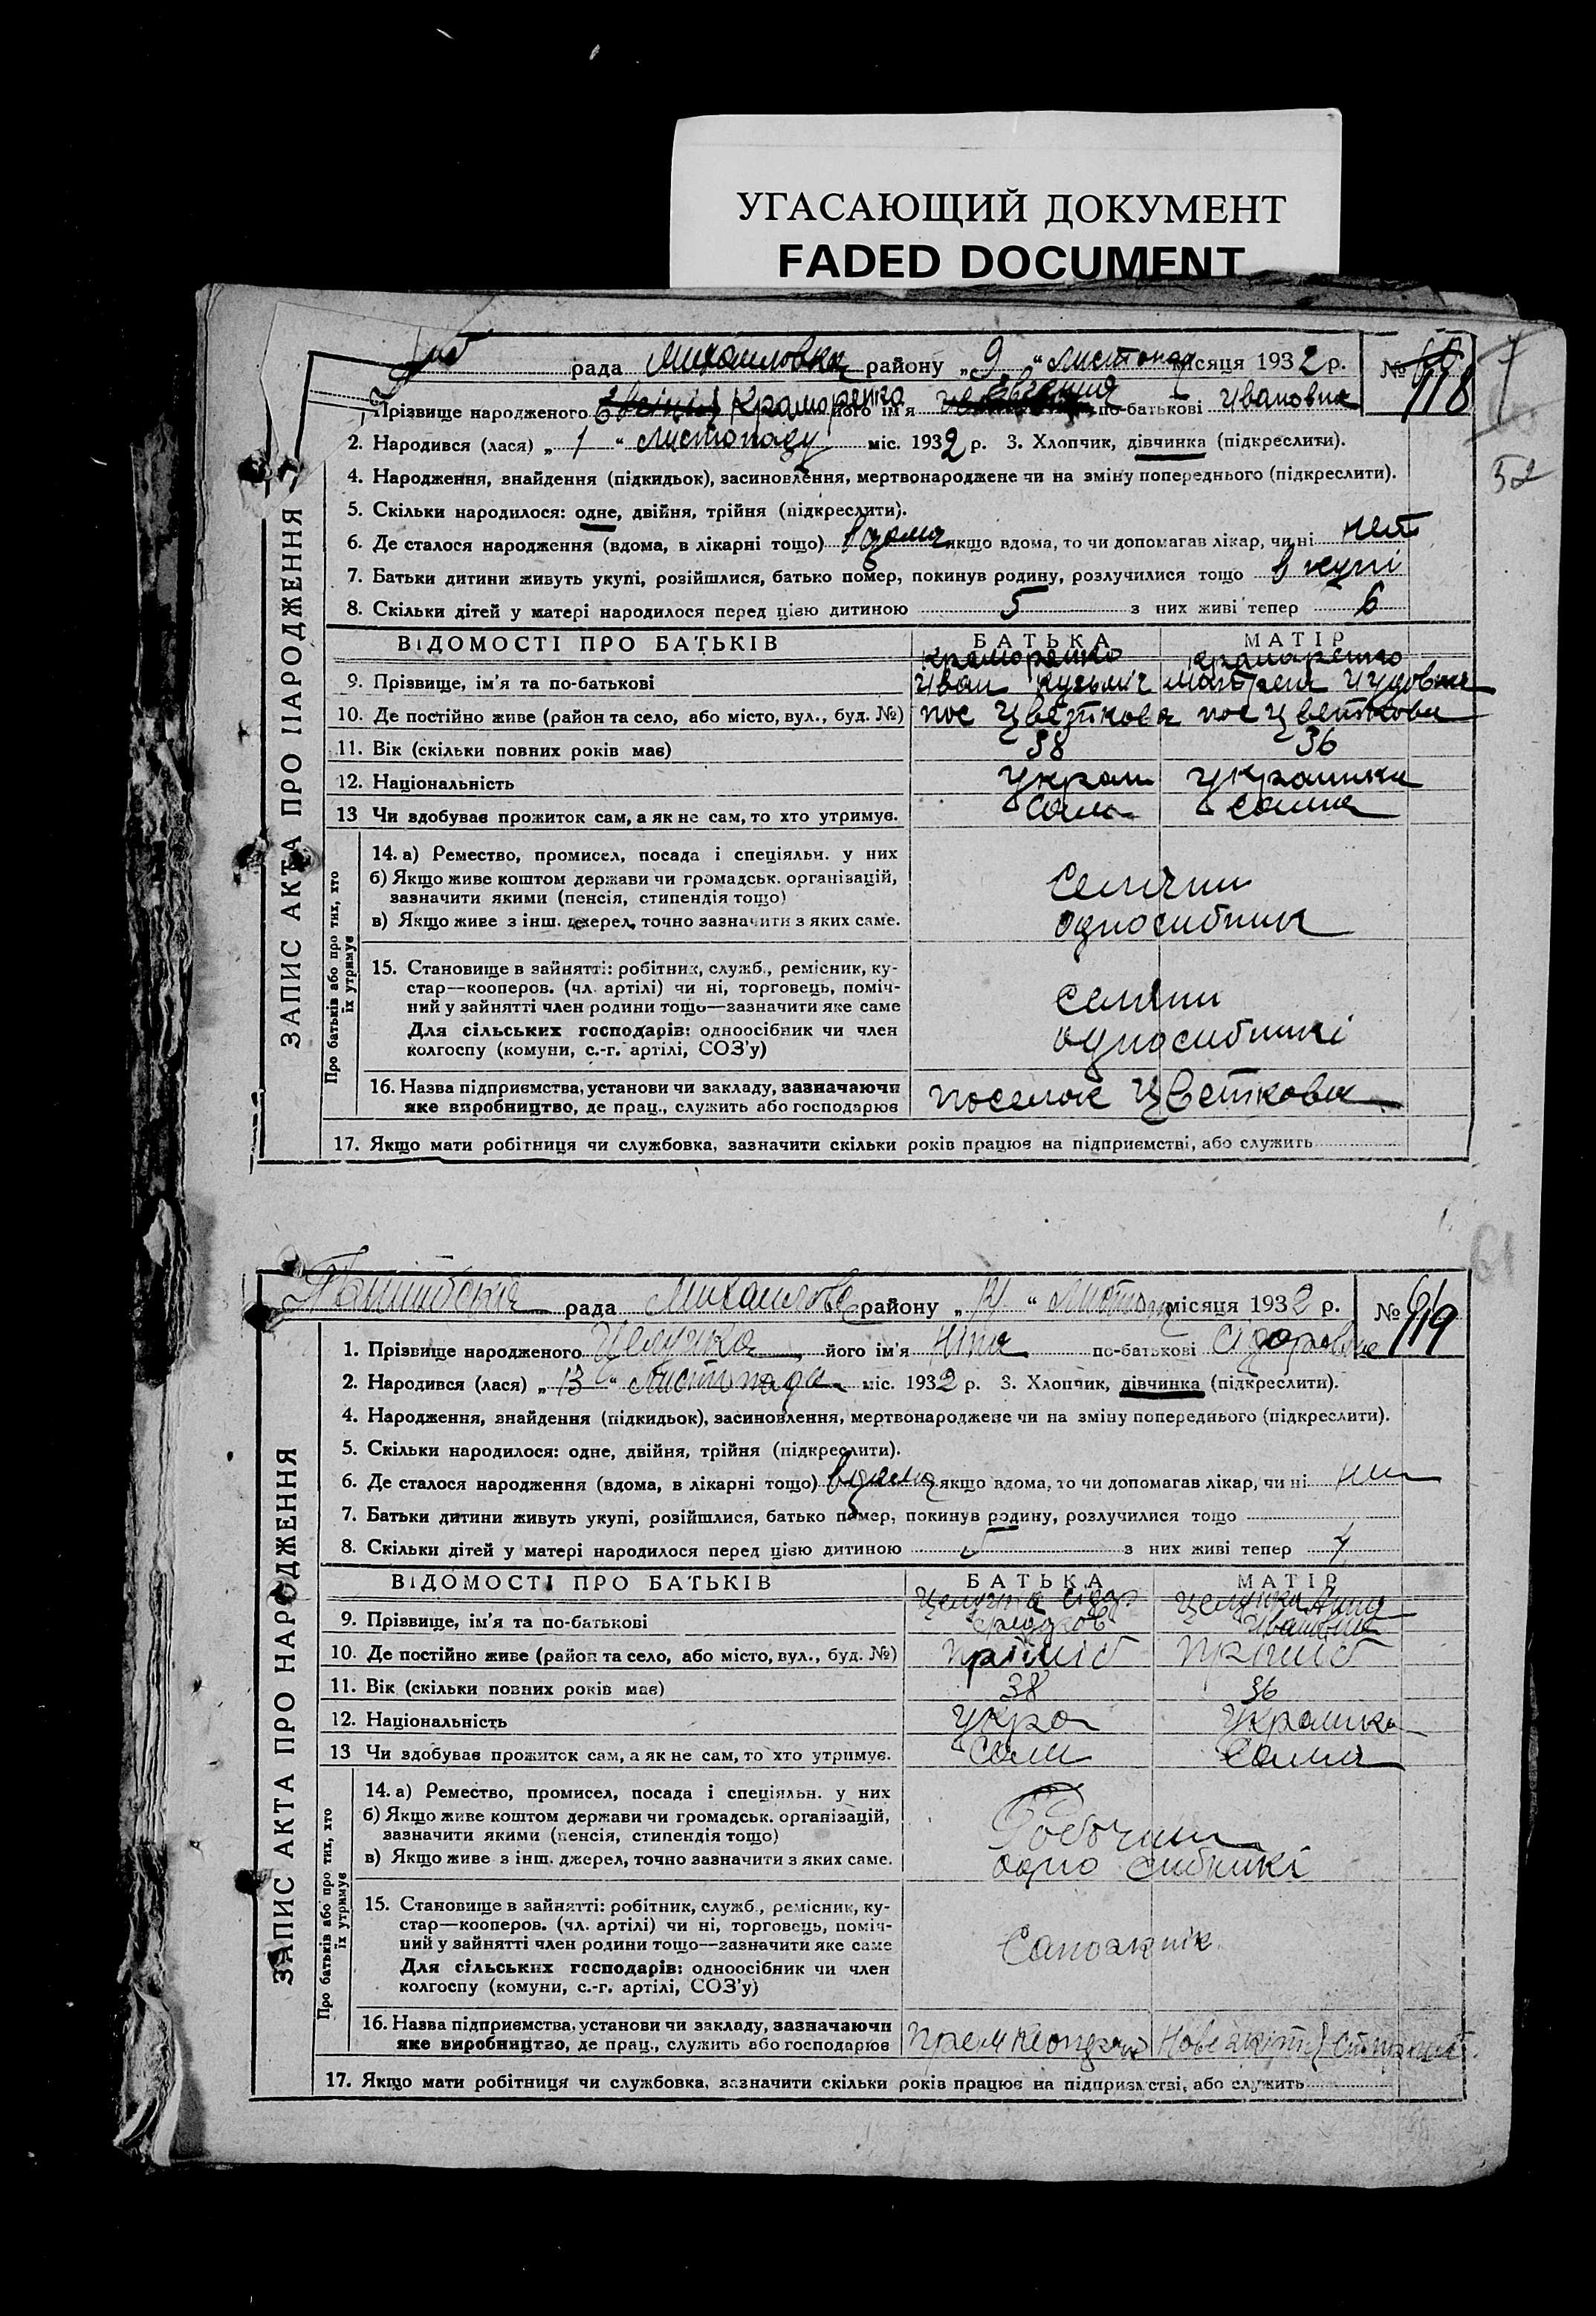 УГАСАЮЩИЙ ДОКУМЕНТ
FADED DOCUMENT
рада Михаиловка району „ 9 “ Листопад місяця 1932 р. № 118
Прізвище народженого Краморенко його ім'я Евгения по-батькові Ивановна
2. Народився (лася) „ 1 “ Листопаду міс. 1932 р. 3. Хлопчик, дівчинка (підкреслити).
52
4. Народження, знайдення (підкидьок), засиновлення, мертвонароджене чи на зміну попереднього (підкреслити).
5. Скільки народилося: одне, двійня, трійня (підкреслити).
6. Де сталося народження (вдома, в лікарні тощо) вдома якщо вдома, то чи допомагав лікар, чи ні нет
7. Батьки дитини живуть укупі, розійшлися, батько помер, покинув родину, розлучилися тощо в купі
8. Скільки дітей у матері народилося перед цією дитиною 5 з них живі тепер 6
ВІДОМОСТІ ПРО БАТЬКІВ БАТЬКА МАТІР
Краморенко Краморенко
9. Прізвище, ім'я та по-батькові Иван Кузьмич
10. Де постійно живе (район та село, або місто, вул., буд. №) пос Цветкова пос Цветкова
11. Вік (скільки повних років має) 38 36
12. Національність Украин Украинка
13 Чи здобуває прожиток сам, а як не сам, то хто утримує. Сам Сама
14. а) Ремество, промисел, посада і спеціяльн. у них
б) Якщо живе коштом держави чи громадськ. організацій,
зазначити якими (пенсія, стипендія тощо)
в) Якщо живе з інш. джерел, точно зазначити з яких саме.
15. Становище в зайнятті: робітник, служб., ремісник, ку-
стар—кооперов. (чл. артілі) чи ні, торговець, поміч-
ний у зайнятті член родини тощо—зазначити яке саме
Для сільських господарів: одноосібник чи член
колгоспу (комуни, с.-г. артілі, СОЗ'у)
16. Назва підприємства, установи чи закладу, зазначаючи
яке виробництво, де прац., служить або господарює поселок Цветкова
17. Якщо мати робітниця чи службовка, зазначити скільки років працює на підприємстві, або служить
ЗАПИС АКТА ПРО НАРОДЖЕННЯ
Про батьків або про тих, хто
їх утримує
61
рада району „ “ місяця 1932 р. № 119
1. Прізвище народженого його ім'я Ніна по-батькові Сідоровна
2. Народився (лася) „ 13 “ Листопада міс. 1932 р. 3. Хлопчик, дівчинка (підкреслити).
4. Народження, знайдення (підкидьок), засиновлення, мертвонароджене чи на зміну попереднього (підкреслити).
5. Скільки народилося: одне, двійня, трійня (підкреслити).
6. Де сталося народження (вдома, в лікарні тощо) вдома якщо вдома, то чи допомагав лікар, чи ні
7. Батьки дитини живуть укупі, розійшлися, батько помер, покинув родину, розлучилися тощо
8. Скільки дітей у матері народилося перед цією дитиною 5 з них живі тепер
ВІДОМОСТІ ПРО БАТЬКІВ БАТЬКА МАТІР
9. Прізвище, ім'я та по-батькові Ивановна
10. Де постійно живе (район та село, або місто, вул., буд. №)
11. Вік (скільки повних років має) 38 36
12. Національність Укра Украинка
13 Чи здобуває прожиток сам, а як не сам, то хто утримує. Сам Сама
14. а) Ремество, промисел, посада і спеціяльн. у них
б) Якщо живе коштом держави чи громадськ. організацій,
зазначити якими (пенсія, стипендія тощо)
в) Якщо живе з інш. джерел, точно зазначити з яких саме.
15. Становище в зайнятті: робітник, служб., ремісник, ку-
стар—кооперов. (чл. артілі) чи ні, торговець, поміч-
ний у зайнятті член родини тощо—зазначити яке саме
Сапожнік
Для сільських господарів: одноосібник чи член
колгоспу (комуни, с.-г. артілі, СОЗ'у)
16. Назва підприємства, установи чи закладу, зазначаючи
яке виробництво, де прац., служить або господарює
17. Якщо мати робітниця чи службовка, зазначити скільки років працює на підприємстві, або служить
ЗАПИС АКТА ПРО НАРОДЖЕННЯ
Про батьків або про тих, хто
їх утримує